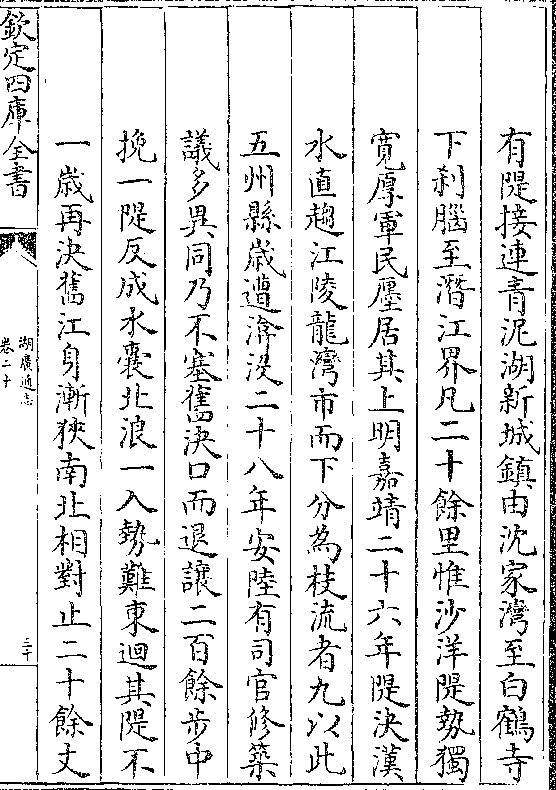 有隄接連青泥湖新城鎮由沈家灣至白鶴寺
下刹腦至潛江界凡二十餘里惟沙洋隄勢獨
寛厚軍民廛居其上明嘉靖二十六年隄決漢
水直趨江陵龍灣市而下分為枝流者九以此
五州縣歲遭渰沒二十八年安陸有司官修築
議多異同乃不塞舊決口而退讓二百餘步中
挽一隄反成水囊北浪一入勢難東迴其隄不
一歲再決舊江身漸狹南北相對止二十餘丈
欽定四庫全書
湖廣通志
卷二十
三十